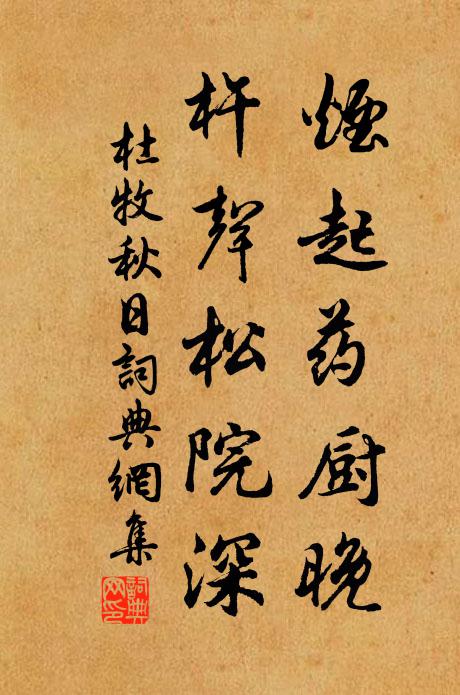 煙起药厨晚
杵聲松院深
杜牧秋日詞典網集
詞典网印